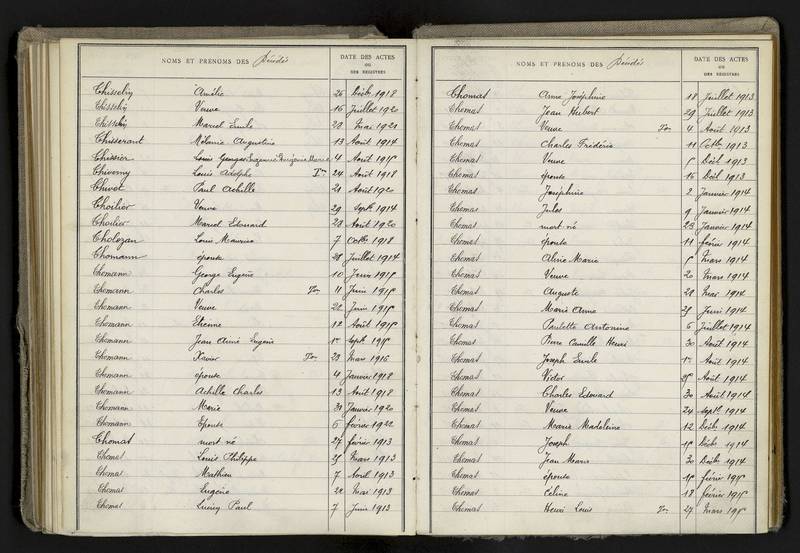 NOMS ET PRENOMS DES Décédés DATE DES ACTES OU DES REGISTRES
Amélie 26 Déb. 1918
Veuve 16 Juillet 1920
Marcel Emile 20 Mai 1921
Mélanie Augustine 13 Août 1914
Louis Georges Eugène Benjamin Marie 4 Août 1915
Louis Adolphe 24 Août 1918
Paul Achille 21 Août 1920
Veuve 29 Septb. 1914
Marcel Edouard 20 Août 1920
Louis Maurice 7 Octb. 1918
Thomann épouse 28 Juillet 1914
Thomann George Eugène 10 1915
Thomann Charles 11 Juin 1915
Thomann Veuve 22 Juin 1915
Thomann Etienne 12 Août 1915
Thomann Jean Aimé Eugène 1er Septb. 1915
Thomann Xavier 23 Mars 1916
Thomann épouse 4 Janvier 1918
Thomann Achille Charles 13 Août 1918
Thomann Marie 30 Janvier 1920
Thomann Epouse 6 février 1922
Thomas mort né 27 février 1913
Thomas Louis Philippe 25 Mars 1913
Thomas Mathieu 7 Avril 1913
Thomas Eugène 22 Mai 1913
Thomas Lucien Paul 7 Juin 1913
NOMS ET PRENOMS DES Décédés DATE DES ACTES OU DES REGISTRES
Thomas Anne Joséphine 18 Juillet 1913
Thomas Jean Hubert 29 Juillet 1913
Thomas Veuve 4 Août 1913
Thomas Charles Frédéric 11 Octb. 1913
Thomas Veuve 5 Déb. 1913
Thomas épouse 16 Déb. 1913
Thomas Joséphine 2 Janvier 1914
Thomas Jules 9 Janvier 1914
Thomas mort né 23 Janvier 1914
Thomas épouse 11 février 1914
Thomas Marie 5 Mars 1914
Thomas Veuve 20 Mars 1914
Thomas Auguste 21 Mai 1914
Thomas Marie Anne 25 Juin 1914
Thomas Paulette Antonine 6 Juillet 1914
Thomas Pierre Camille Henri 30 Août 1914
Thomas Joseph Emile 1er Août 1914
Thomas Victor 25 Août 1914
Thomas Charles Edouard 30 Août 1914
Thomas Veuve 24 Septb. 1914
Thomas Marie Madeleine 12 Déb. 1914
Thomas Joseph 15 Déb. 1914
Thomas Jean Marie 30 Déb. 1914
Thomas épouse 15 février 1915
Thomas Céline 18 février 1915
Thomas Henri Louis 27 Mars 1915